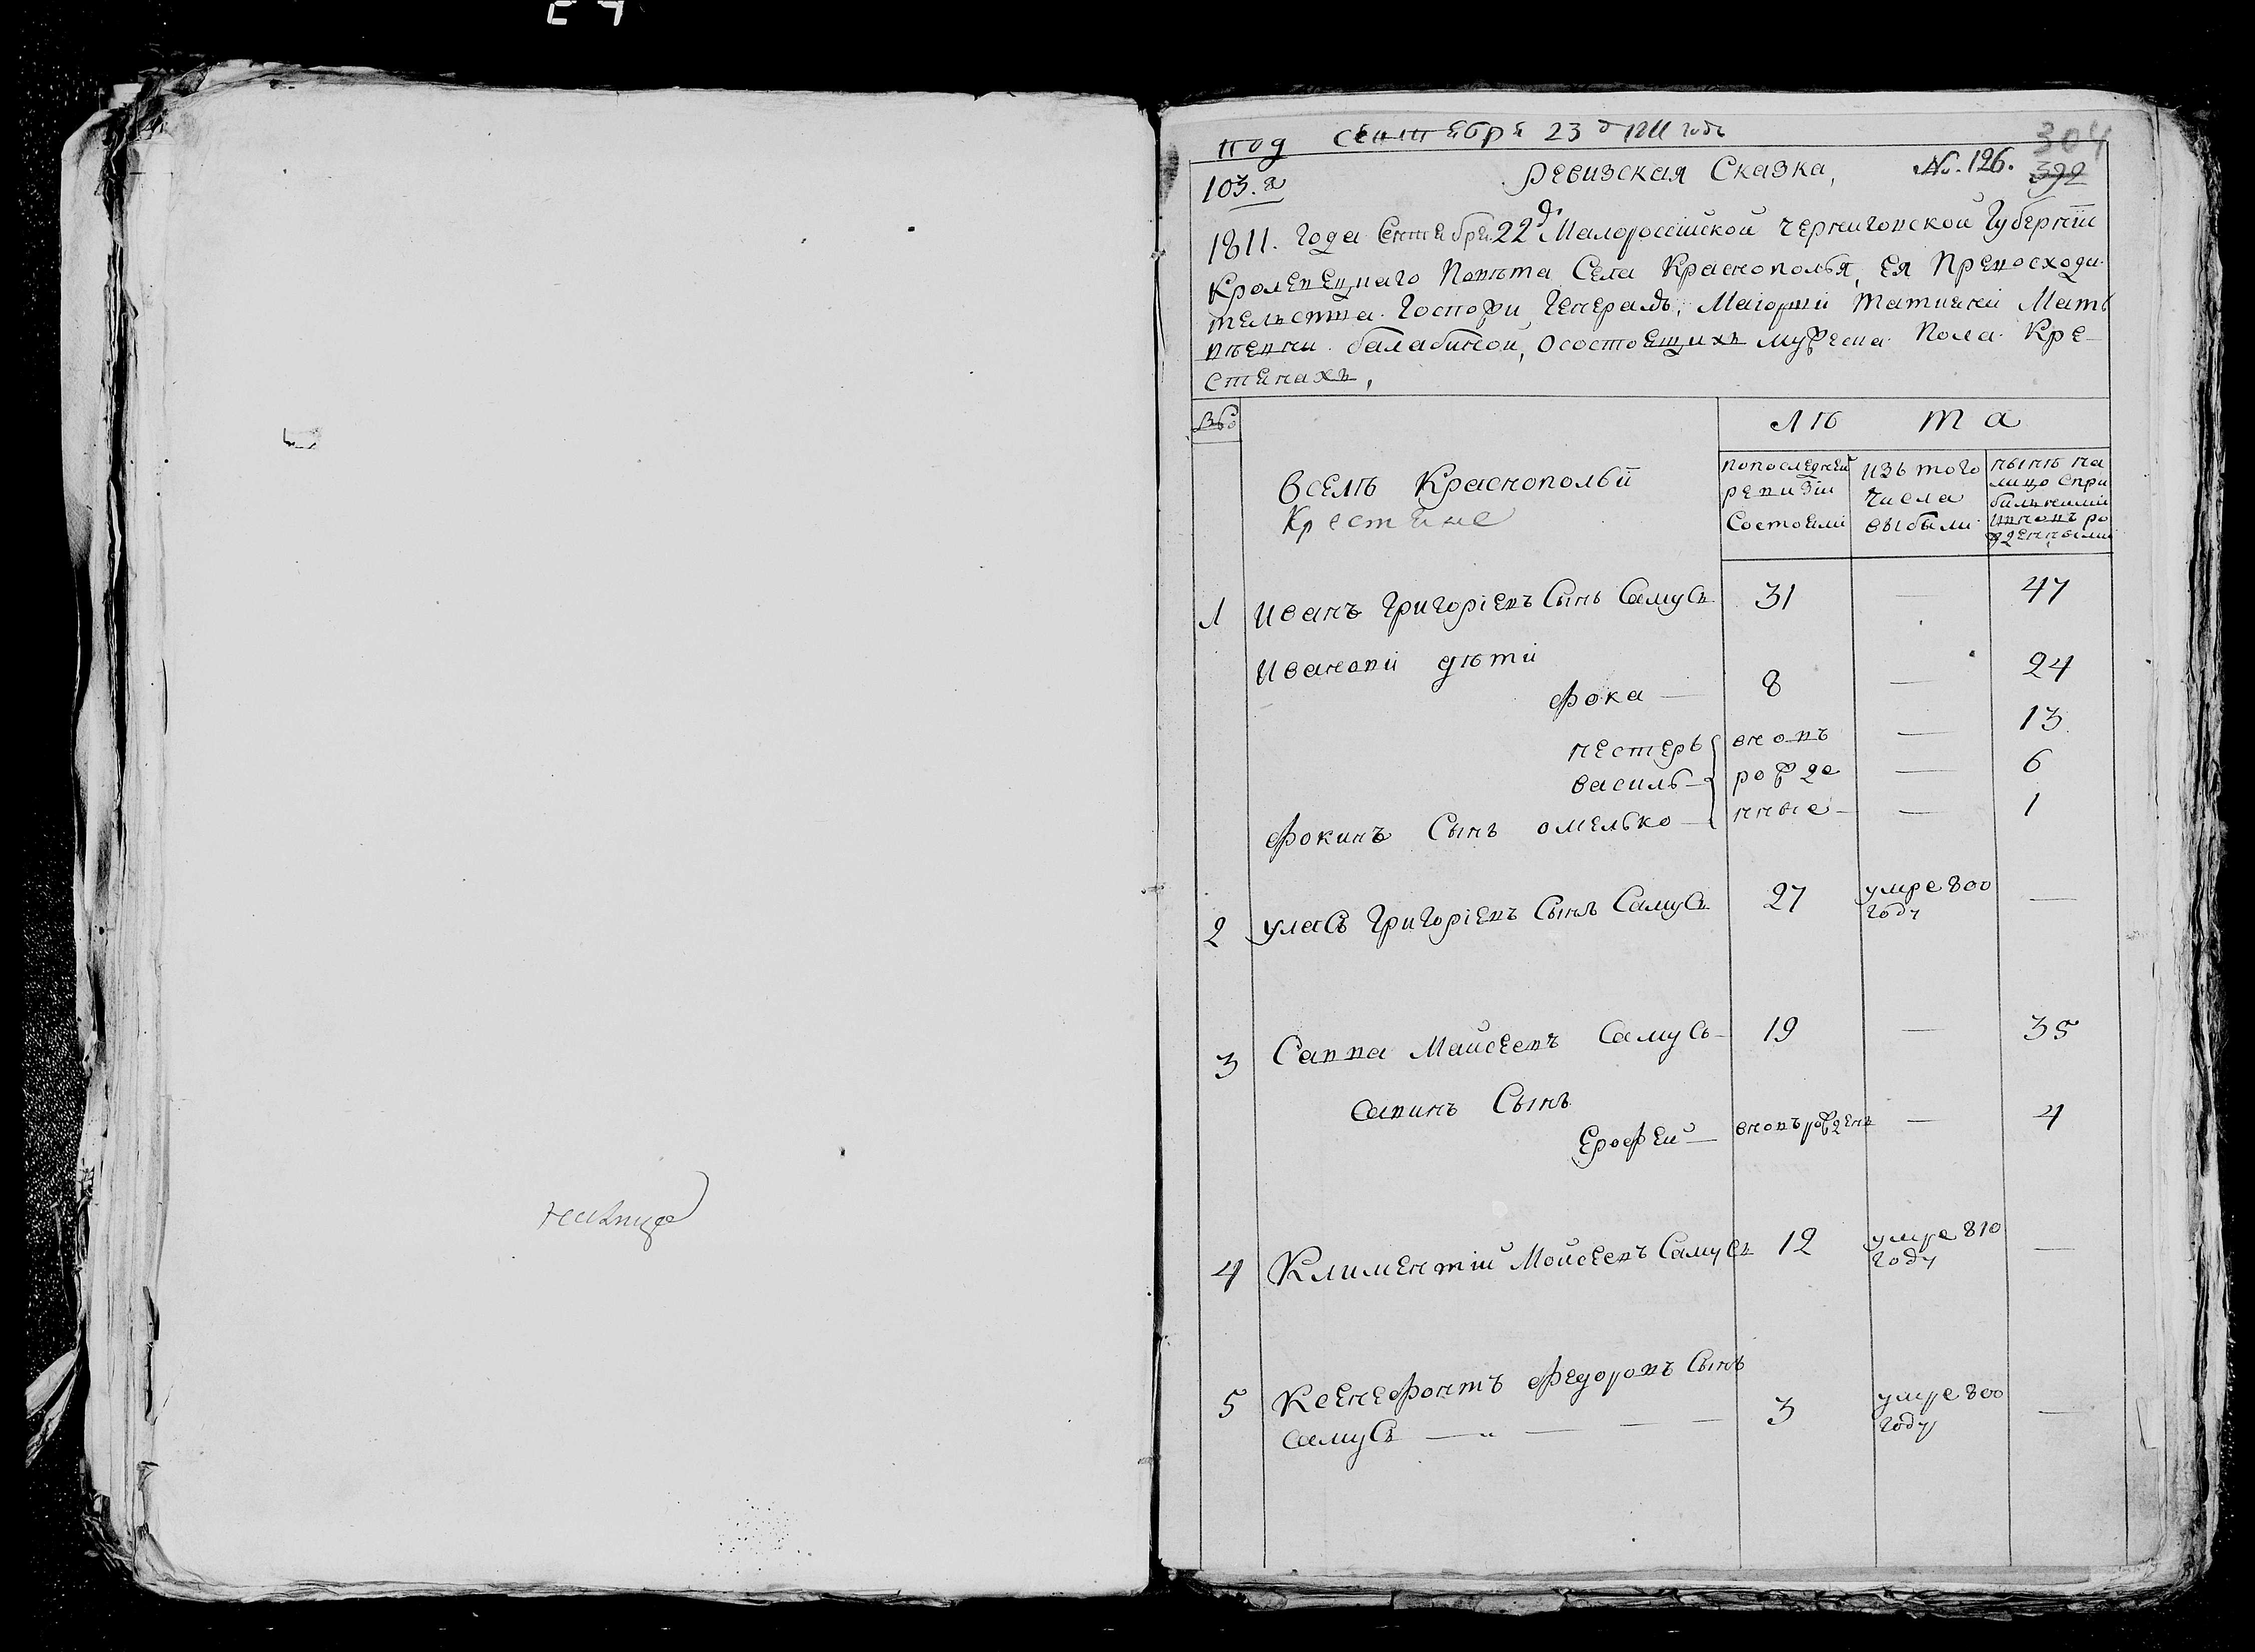 под сентебря 23 д 1811 годъ
304
103.я Ревизская Сказка, №. 126. 392
1811. Года Сентебря 22 д. Малоросійской Черниговской Губерніи
Кролевецкаго Повѣта Села Краснополья, Ея Превосходи
тельства Госпожи Генералъ, Маіорши Татияни Мать
вѣевни Балабиной, осостоещихъ мужеска Пола Кре-
стенахъ,
Лѣ та
Вселѣ Краснопольи
Крестене
попоследней
ревизіи
Состоели
изъ того
числа
выбыли
нынѣ на
лицо спри
билними
ивновъ ро
жденными
1 Иванъ Григоріевъ Сынъ Самусь 31 — 47
Иванови дѣти
Фока — 8 — 24
нестеръ вновъ — 13
василь — рожде — 6
Фокинъ Сынъ омелько — нные — — 1
2 уласъ Григоріевъ Сынъ Самусь 27 умре 800 —
году
3 Савва Майсеевъ Самусь — 19 — 35
Савинъ Сынъ
Ерофей — вновъ рожденъ — 4
4 Климентій Мойсеевъ Самусь 12 умре 810 —
году
5 Ксенефонтъ Федоровъ Сынъ
Самусь — „ — — — 3 умре 800 —
году